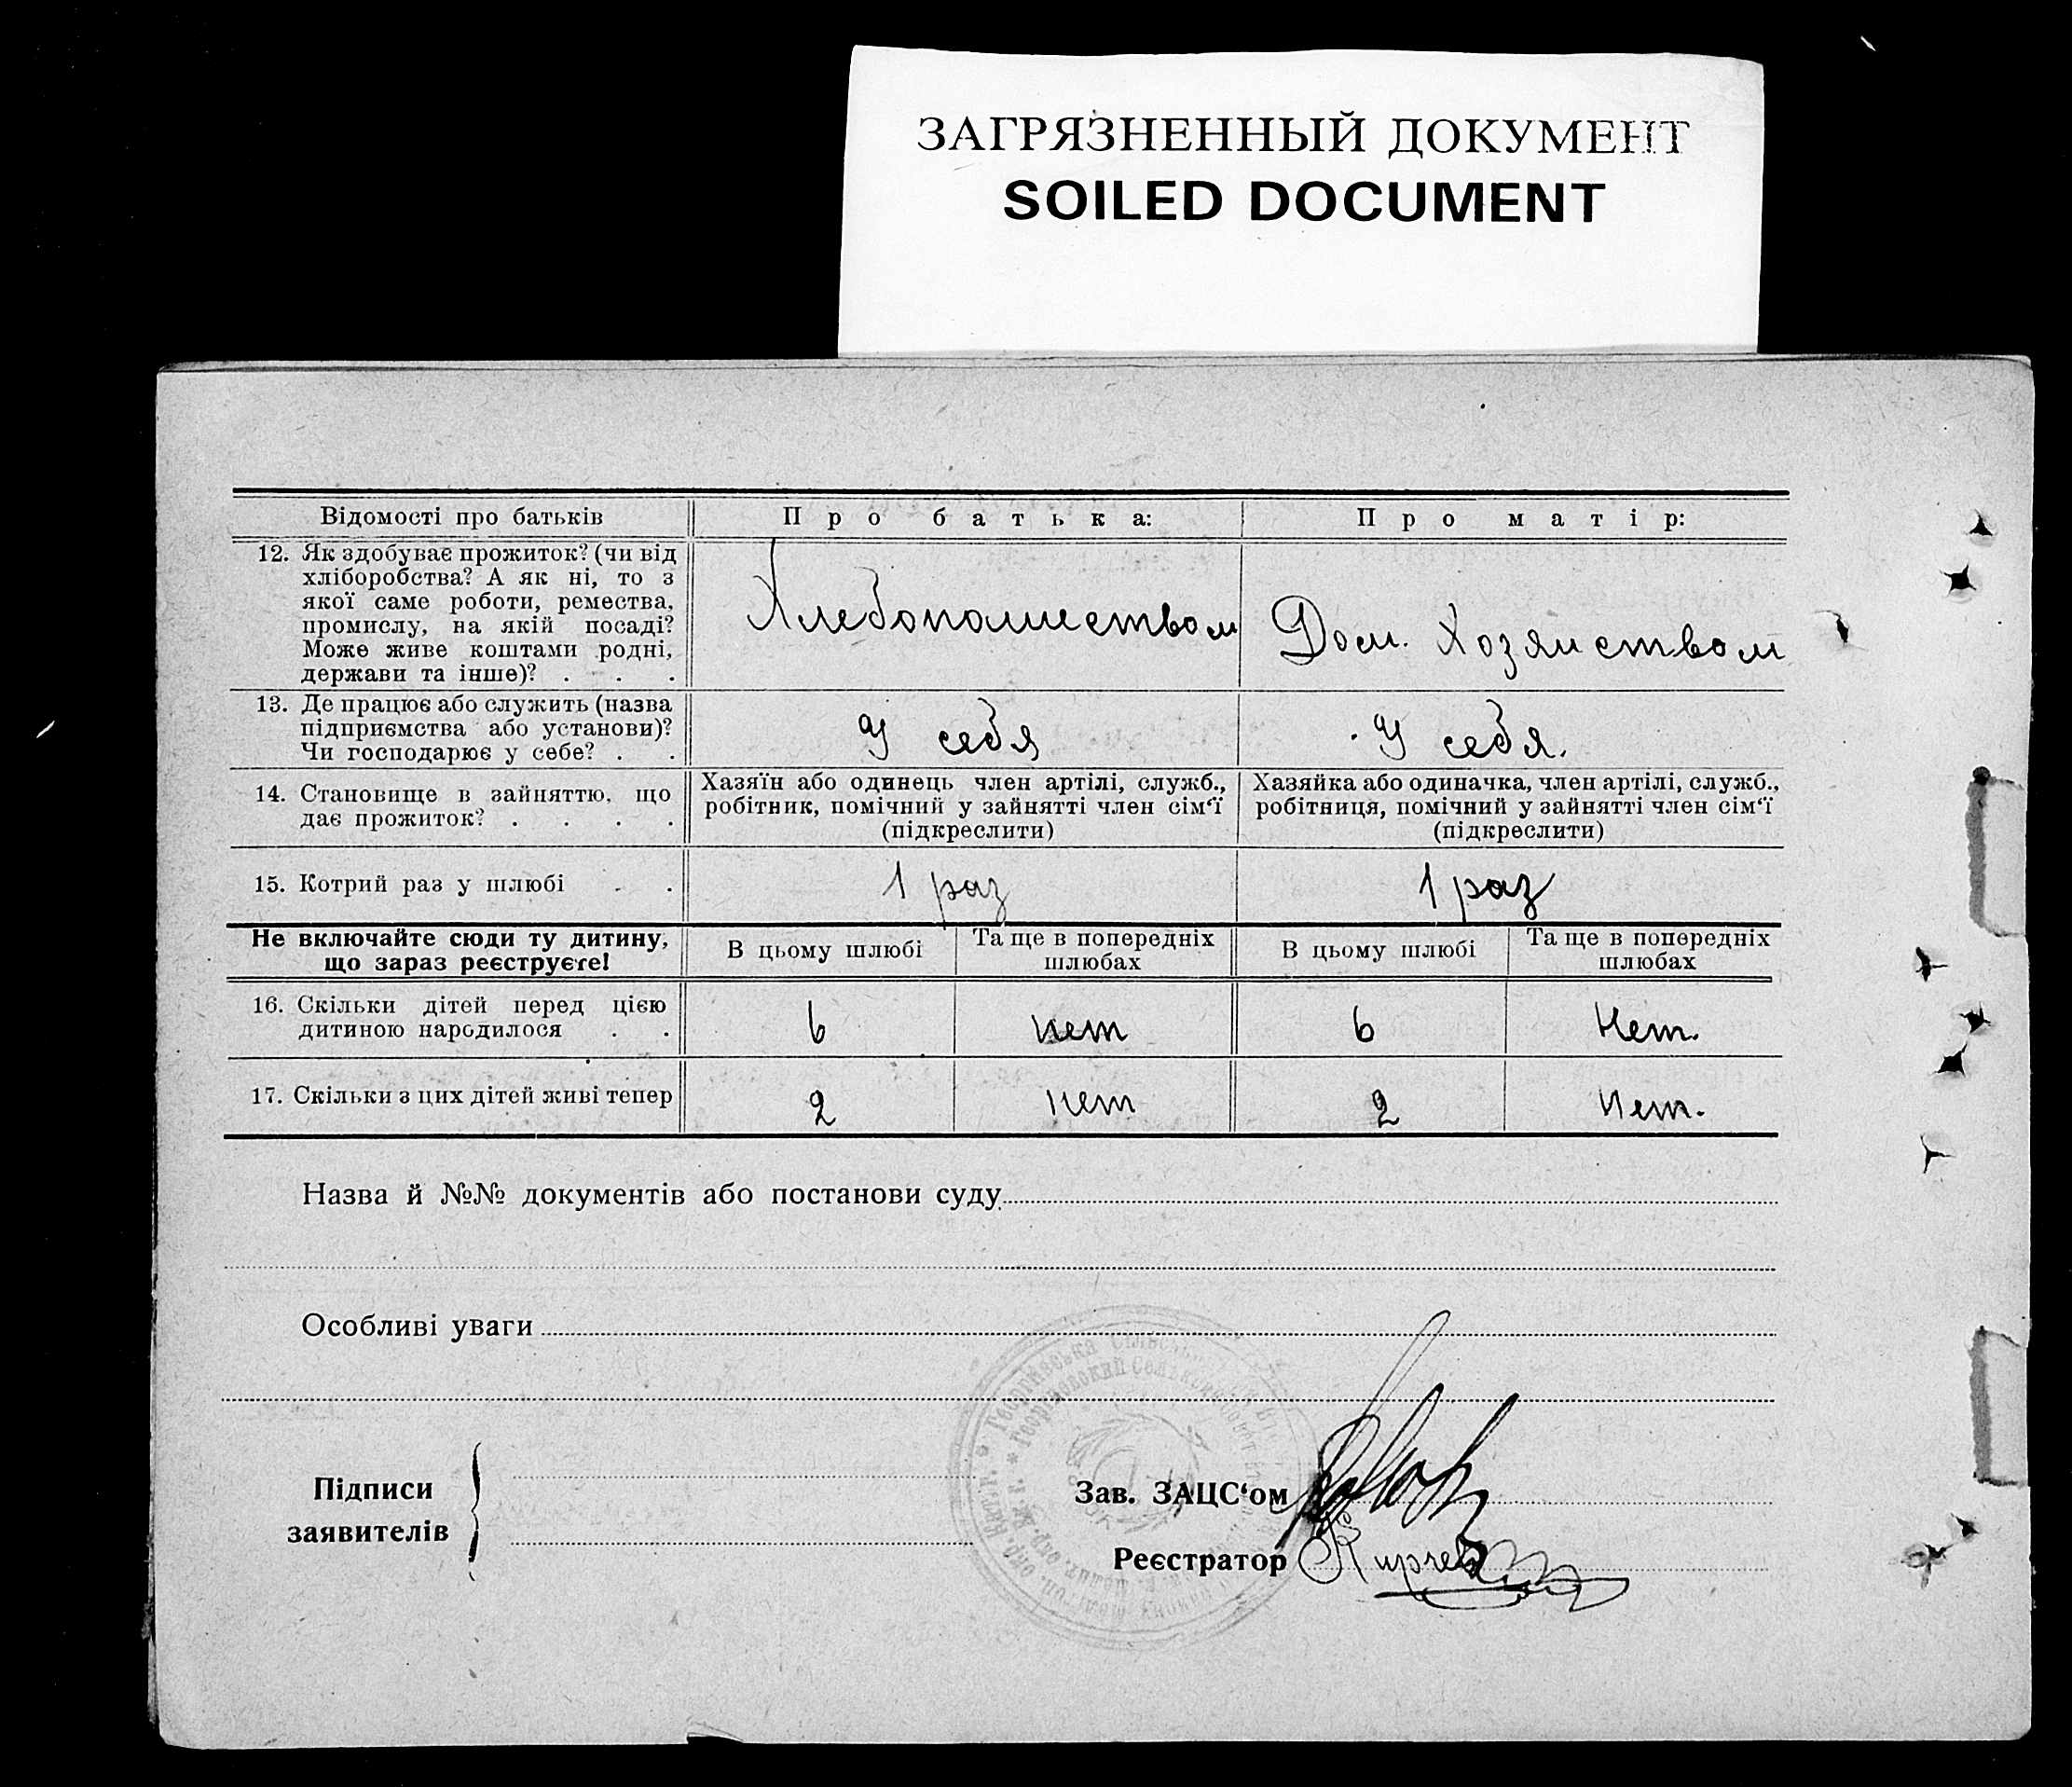 ЗАГРЯЗНЕННЫЙ ДОКУМЕНТ
SOILED DOCUMENT
Відомості про батьків
Про батька:
Про матір:
12. Як здобуває прожиток? (чи від
хліборобства? А як ні, то з
якої саме роботи, ремества,
промислу, на якій посаді?
Може живе коштами родні,
держави та інше)? . . .
Хлебопашеством
Дом. Хозяиством
13. Де працює або служить (назва
підприємства або установи)?
Чи господарює у себе? . .
У себя
У себя.
14. Становище в зайняттю, що
дає прожиток? . . . .
Хазяїн або одинець член артілі, служб.,
робітник, помічний у зайнятті член сім‘ї
(підкреслити)
Хазяйка або одиначка, член артілі, служб.,
робітниця, помічний у зайнятті член сім‘ї
(підкреслити)
15. Котрий раз у шлюбі . .
1 раз
1 раз
Не включайте сюди ту дитину,
що зараз реєструєте!
В цьому шлюбі
Та ще в попередніх
шлюбах
В цьому шлюбі
Та ще в попередніх
шлюбах
16. Скільки дітей перед цією
дитиною народилося . .
6
нет
6
Нет.
17. Скільки з цих дітей живі тепер
2
нет
2
Нет.
Назва й №№ документів або постанови суду
Особливі уваги
Підписи
заявителів
Зав. ЗАЦС‘ом
Реєстратор